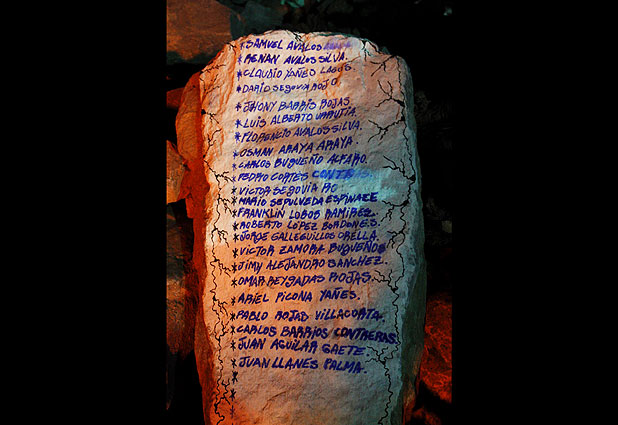 * SAMUEL AVALOS
* RENAN AVALOS SILVA.
* CLAUDIO YAÑES LAGOS
* DARIO SEGOVIA ROJO
* JHONY BARRIS ROJAS.
* LUIS ALBERTO URRUTIA.
* FLORENCIO AVALOS SILVA.
* OSMAN ARAYA ARAYA.
* CARLOS BUGUEÑO ALFARO.
* PEDRO CORTÉS CONTR
* VICTOR SEGOVIA RO
* MARIO SEPULVEDA ESPINACE
* FRANKLIN LOBOS RAMIREZ.
* ROBERTO LÓPEZ BORDONES.
* JORGE GALLEGUILLOS ORELLA.
* VICTOR ZAMORA BUGUENOS
* JIMY ALEJANDRO SANCHEZ.
* OMAR REYGADAS ROJAS.
* ARIEL PICONA YAÑES.
* PABLO ROJAD VILLACORTA.
* CARLOS BARRIOS CONTRERAS.
* JUAN AGUILAR GAETE
* JUAN LLANES PALMA.
*
*
*